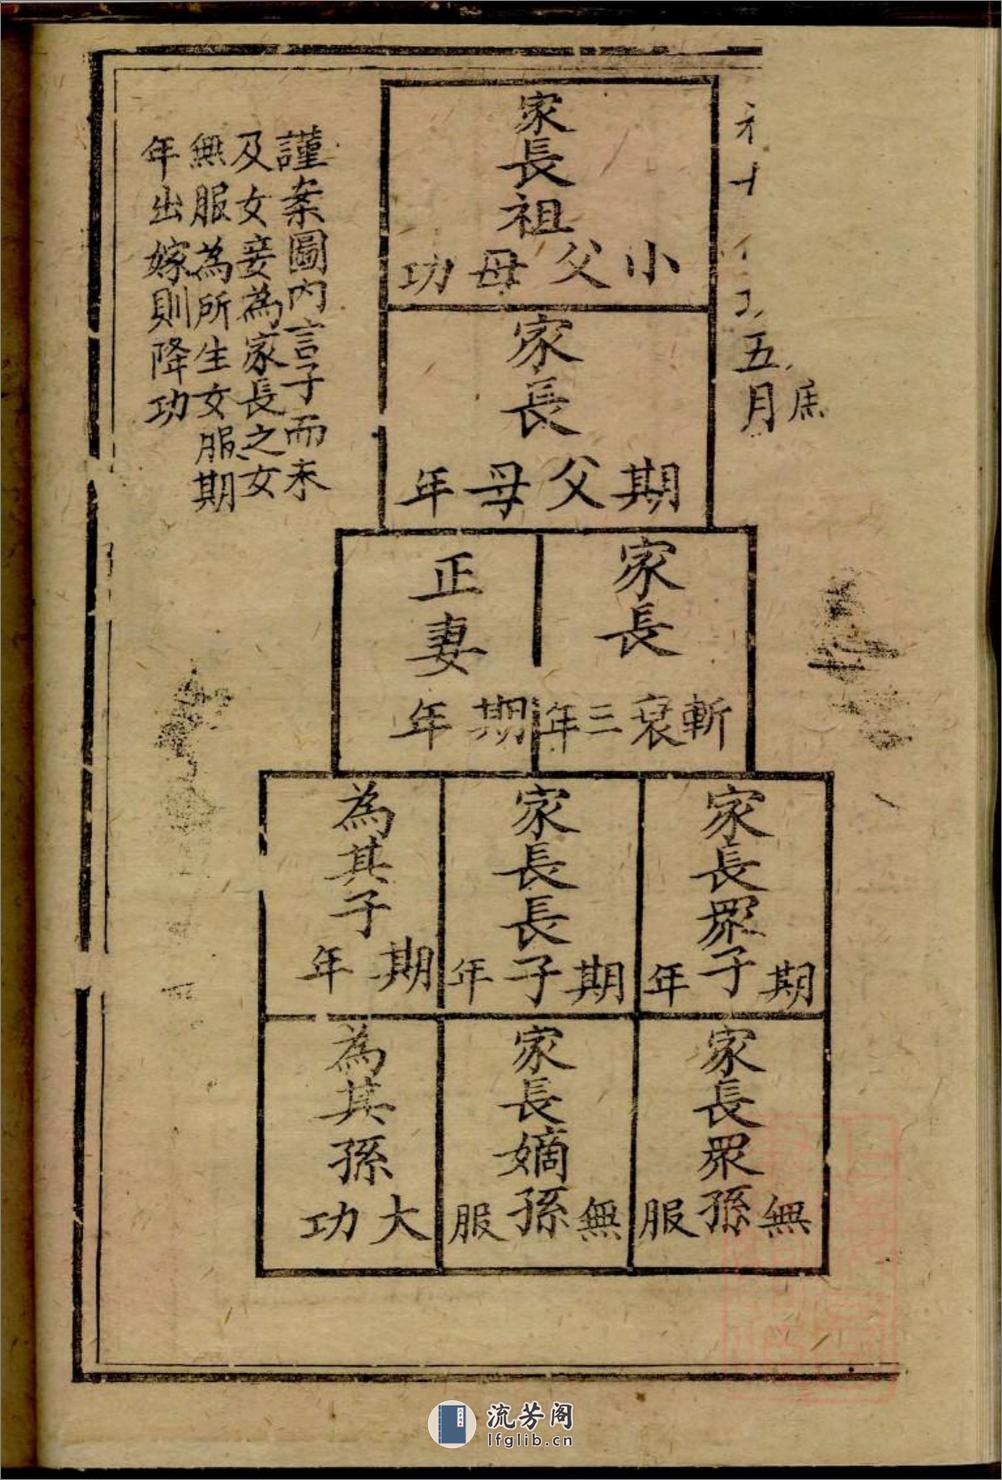 五月
家長祖父母
小功
家長父母
期年
家長
斬衰三年
正妻
期年
家長眾子
期年
家長長子
期年
為其子
期年
家長眾孫
無服
家長嫡孫
無服
為其孫
大功
謹案圖內言子而未
及女妾為家長之女
無服為所生女服期
年出嫁則降功
流芳阁
lfglib.cn